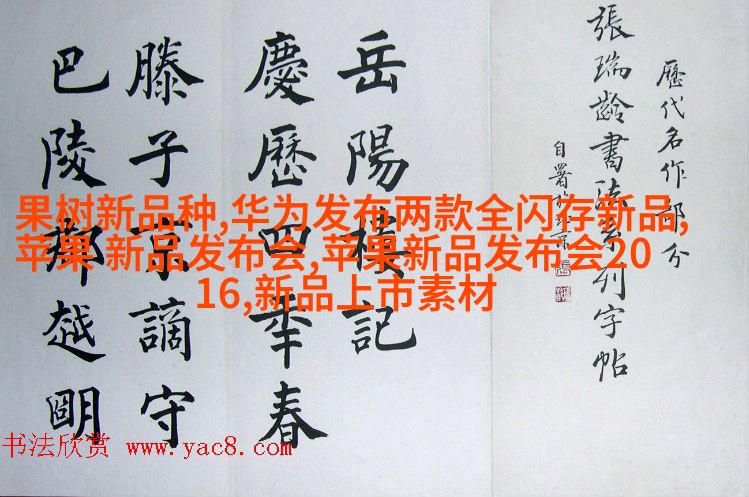 歷代名作部分
張瑞齡書法系列字帖
自署於北京
岳陽樓記
慶歷四年春
滕子京謫守
巴陵郡越明
果树新品种,华为发布两款全闪存新品,
苹果 新品发布会,苹果新品发布会20
16,新品上市素材
书法欣赏 www.yac8.com